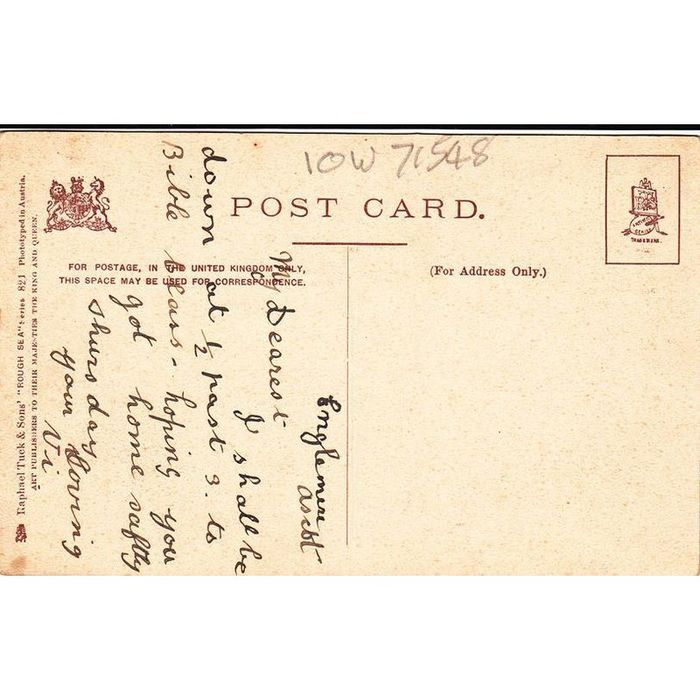 IOW 71548
POST CARD.
FOR POSTAGE, IN THE UNITED KINGDOM ONLY,
THIS SPACE MAY BE USED FOR CORRESPONDENCE.
(For Address Only.)
TRADE MARK.
Raphael Tuck & Sons' "ROUGH SEA" Series 821 Phototyped in Austria.
ART PUBLISHERS TO THEIR MAJESTIES THE KING AND QUEEN.
Englemere
Ascot
My Dearest
I shall be
down at ½ past 3. to
Bible Class - hoping you
got home saftly
thursday
your loving
Vi